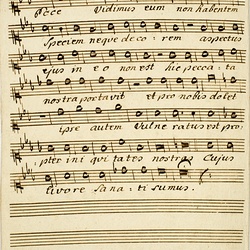 Ecce Vidimus eum non habentem
Speciem neque deco - rem aspectus
ejus in eo non est hic pecca - ta
nostra portavit et pro nobis dolet
ipse autem Vulne ratus est pro
pter ini qui tates nostras Cujus
livore Sana - ti sumus.